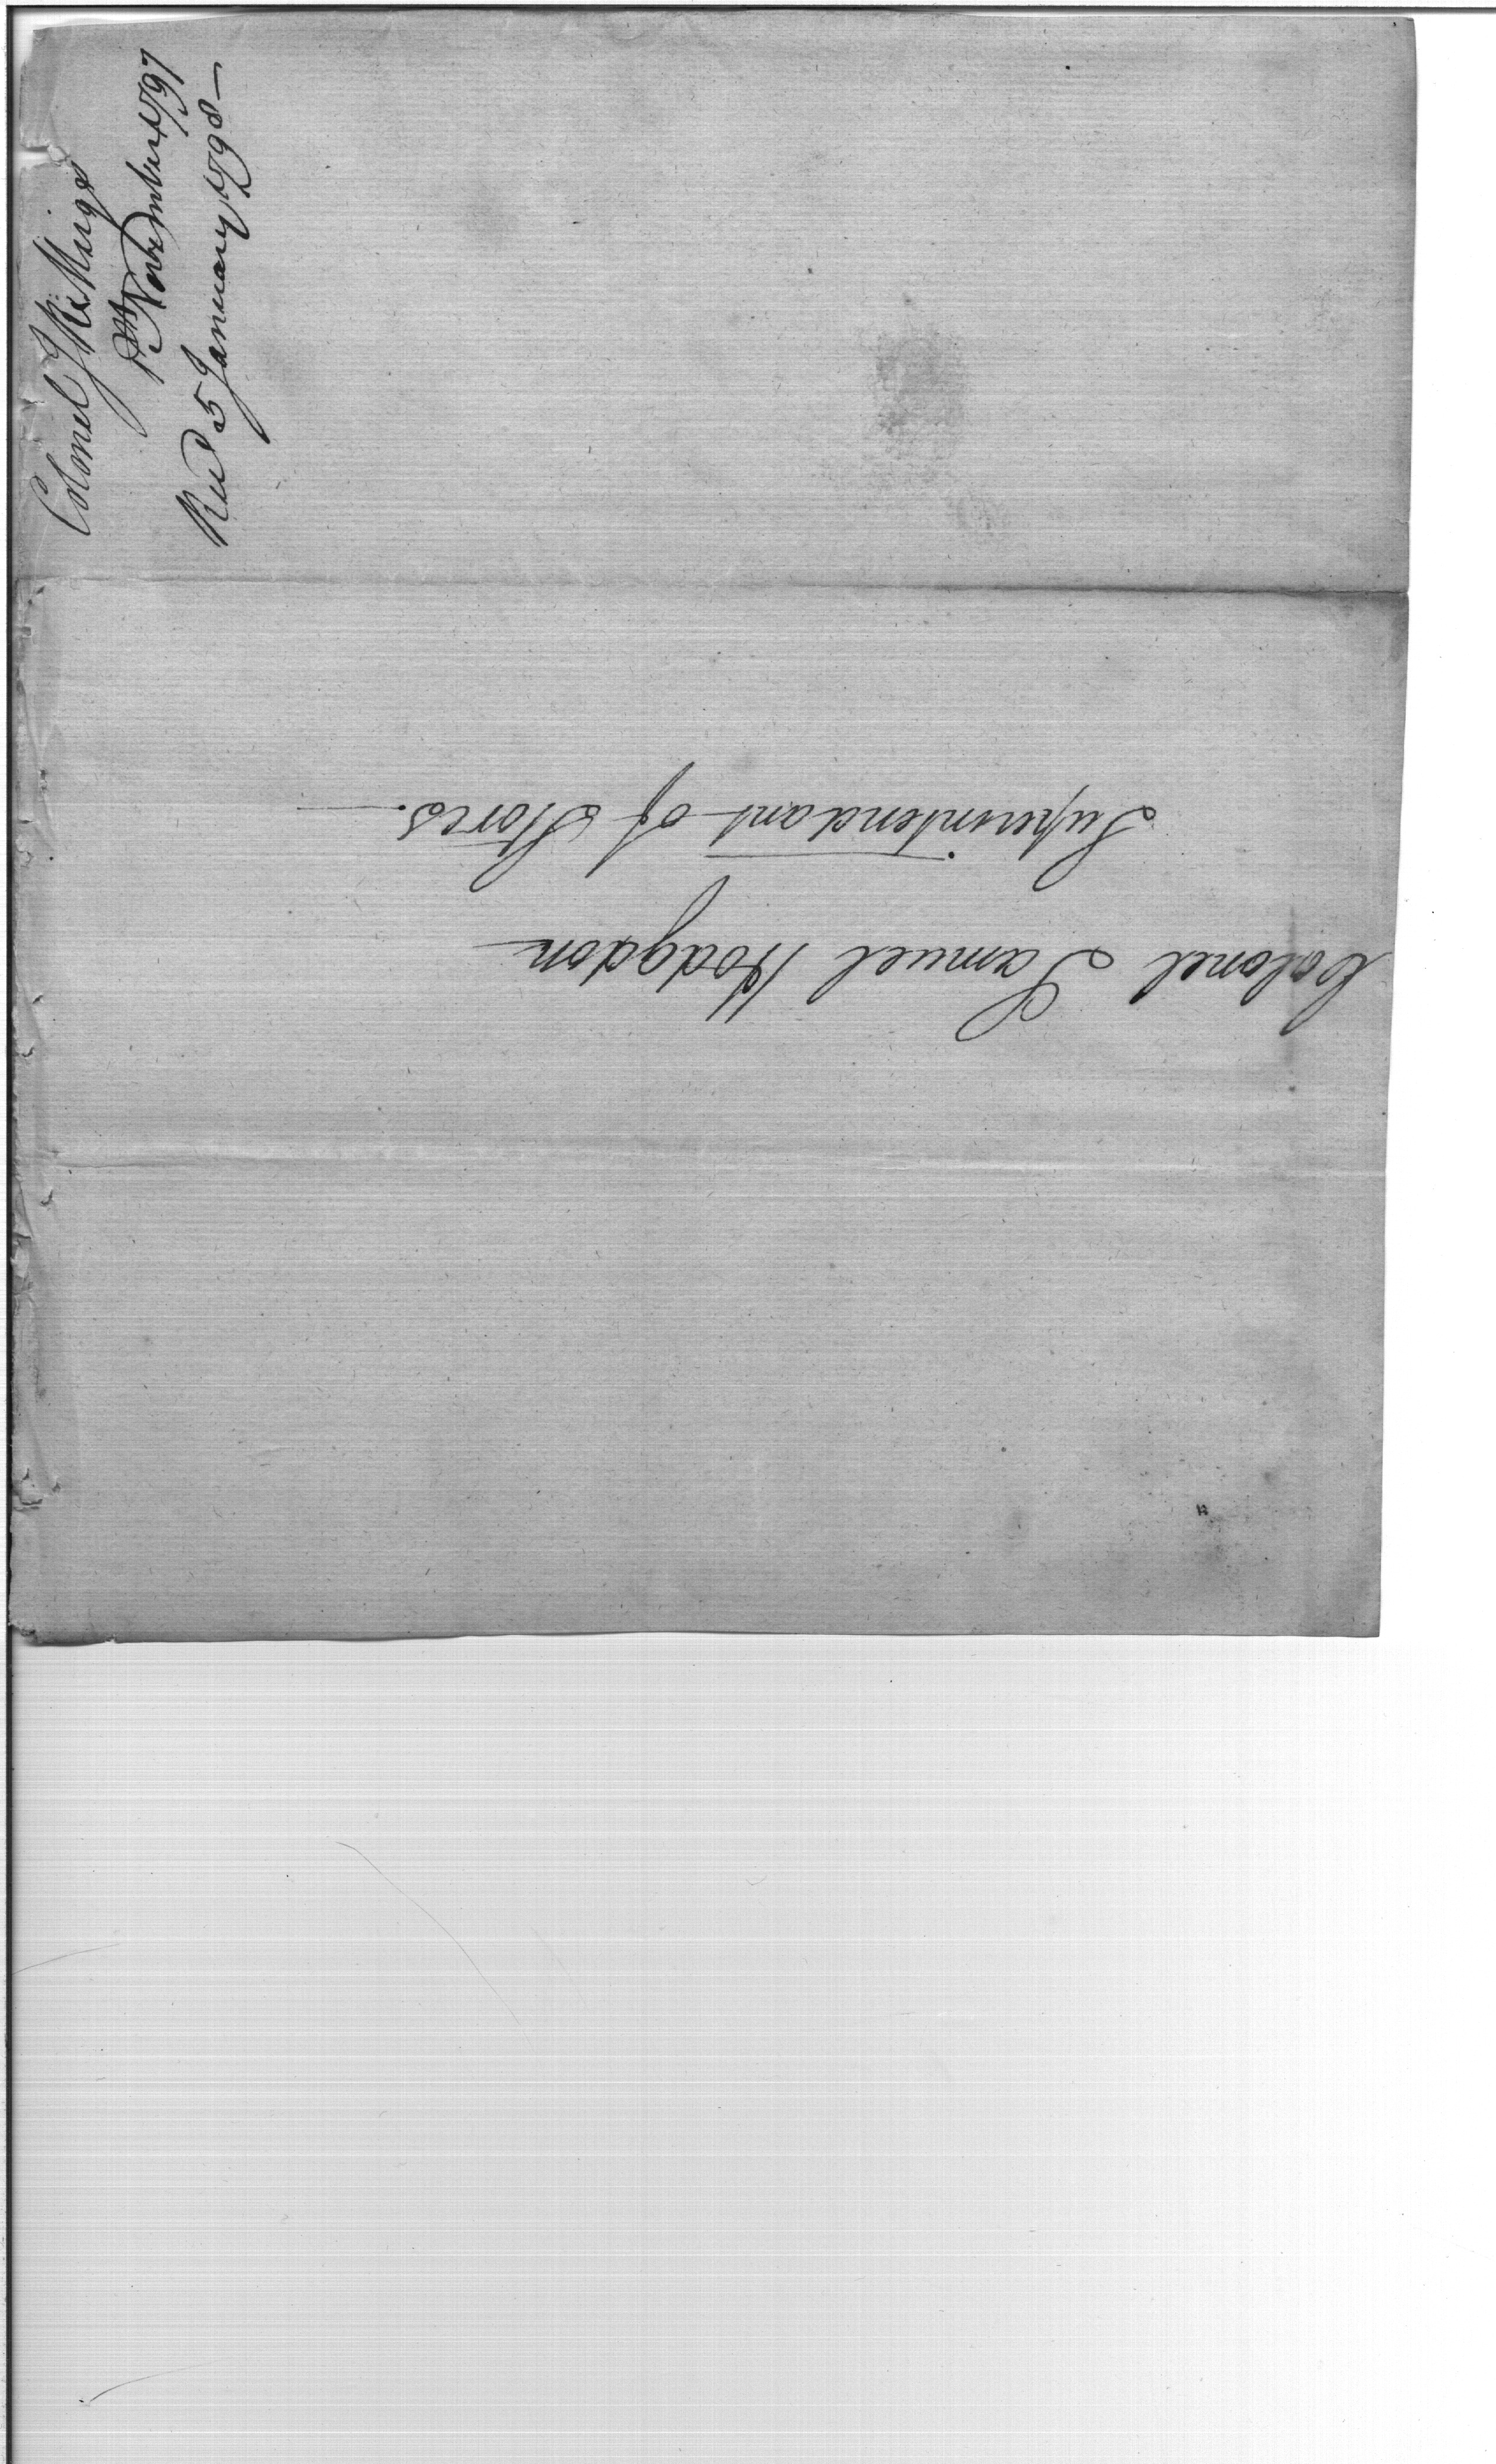 Colonel R. J. Meigs
1st November 1797
Recd 5 January 1798—
Colonel Samuel Hodgdon
Superintendant of Stores.